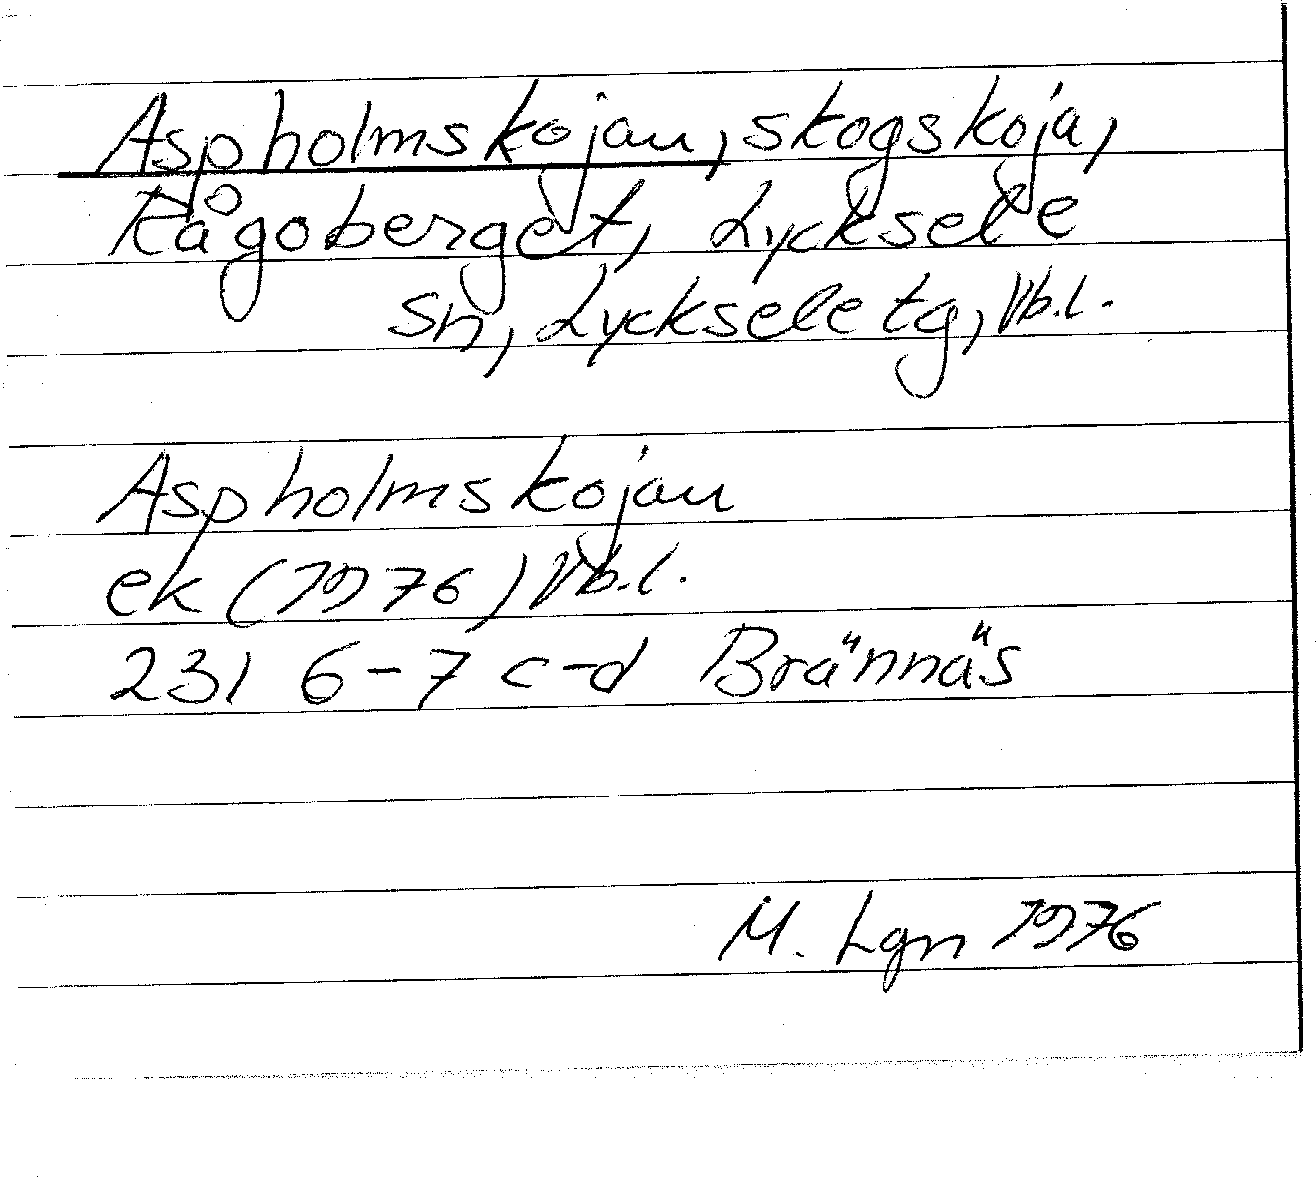 Aspholmskojan, skogskoja,
Kågoberget, Lycksele
sn, Lycksele tg, Vb.l.
Aspholmskojan
ek (1976) Vb.l.
23I 6-7 c-d Brännäs
M. Lgn 1976